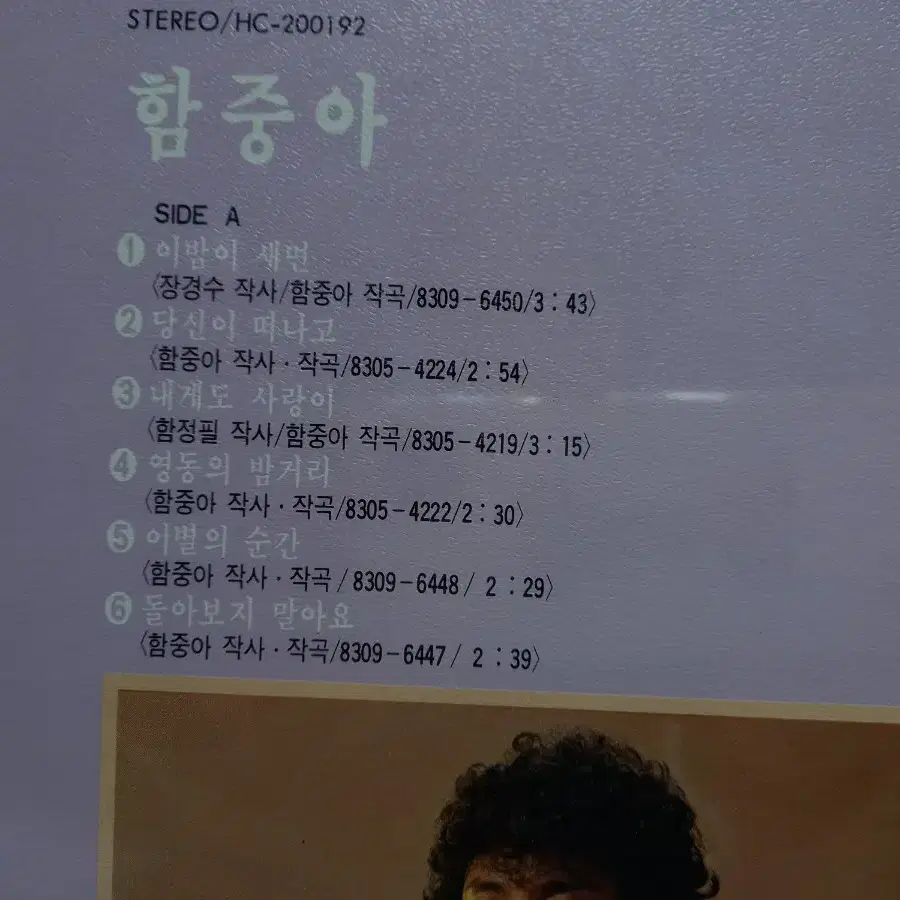 STEREO/HC-200192
함중아
SIDE A
❶ 이밤이 새면
〈장경수 작사/함중아 작곡/8309-6450/3:43〉
❷ 당신이 떠나고
〈함중아 작사·작곡/8305-4224/2:54〉
❸ 내게도 사랑이
〈함정필 작사/함중아 작곡/8305-4219/3:15〉
❹ 영동의 밤거리
〈함중아 작사·작곡/8305-4222/2:30〉
❺ 이별의 순간
〈함중아 작사·작곡/8309-6448/2:29〉
❻ 돌아보지 말아요
〈함중아 작사·작곡/8309-6447/2:39〉